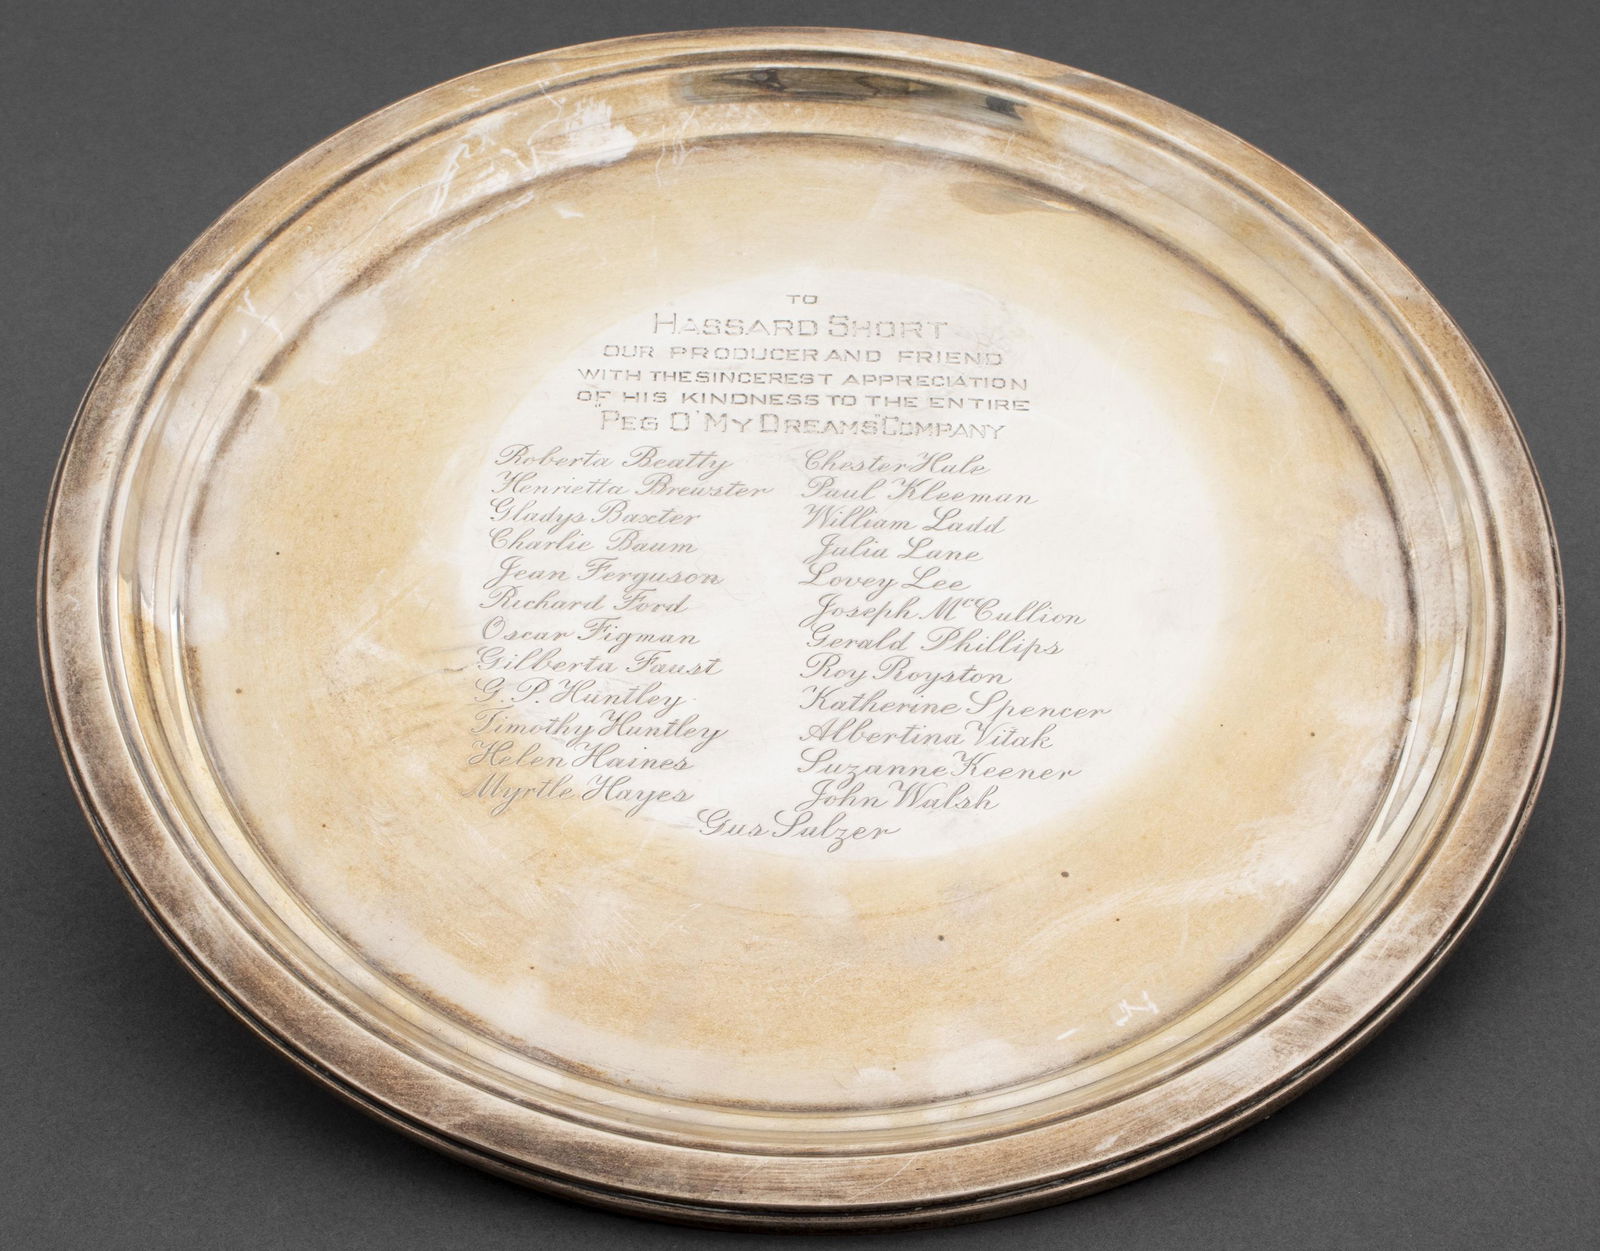 TO
HASSARD SHORT
OUR PRODUCER AND FRIEND
WITH THE SINCEREST APPRECIATION
OF HIS KINDNESS TO THE ENTIRE
"PEG O' MY DREAMS" COMPANY
Roberta Beatty
Henrietta Brewster
Gladys Baxter
Charlie Baum
Jean Ferguson
Richard Ford
Oscar Figman
Gilberta Faust
G. P. Huntley
Timothy Huntley
Helen Haines
Myrtle Hayes
Chester Hale
Paul Kleeman
William Ladd
Julia Lane
Lovey Lee
Joseph McCullion
Gerald Phillips
Roy Royston
Katherine Spencer
Albertina Vitak
Suzanne Keener
John Walsh
Gus Sulzer